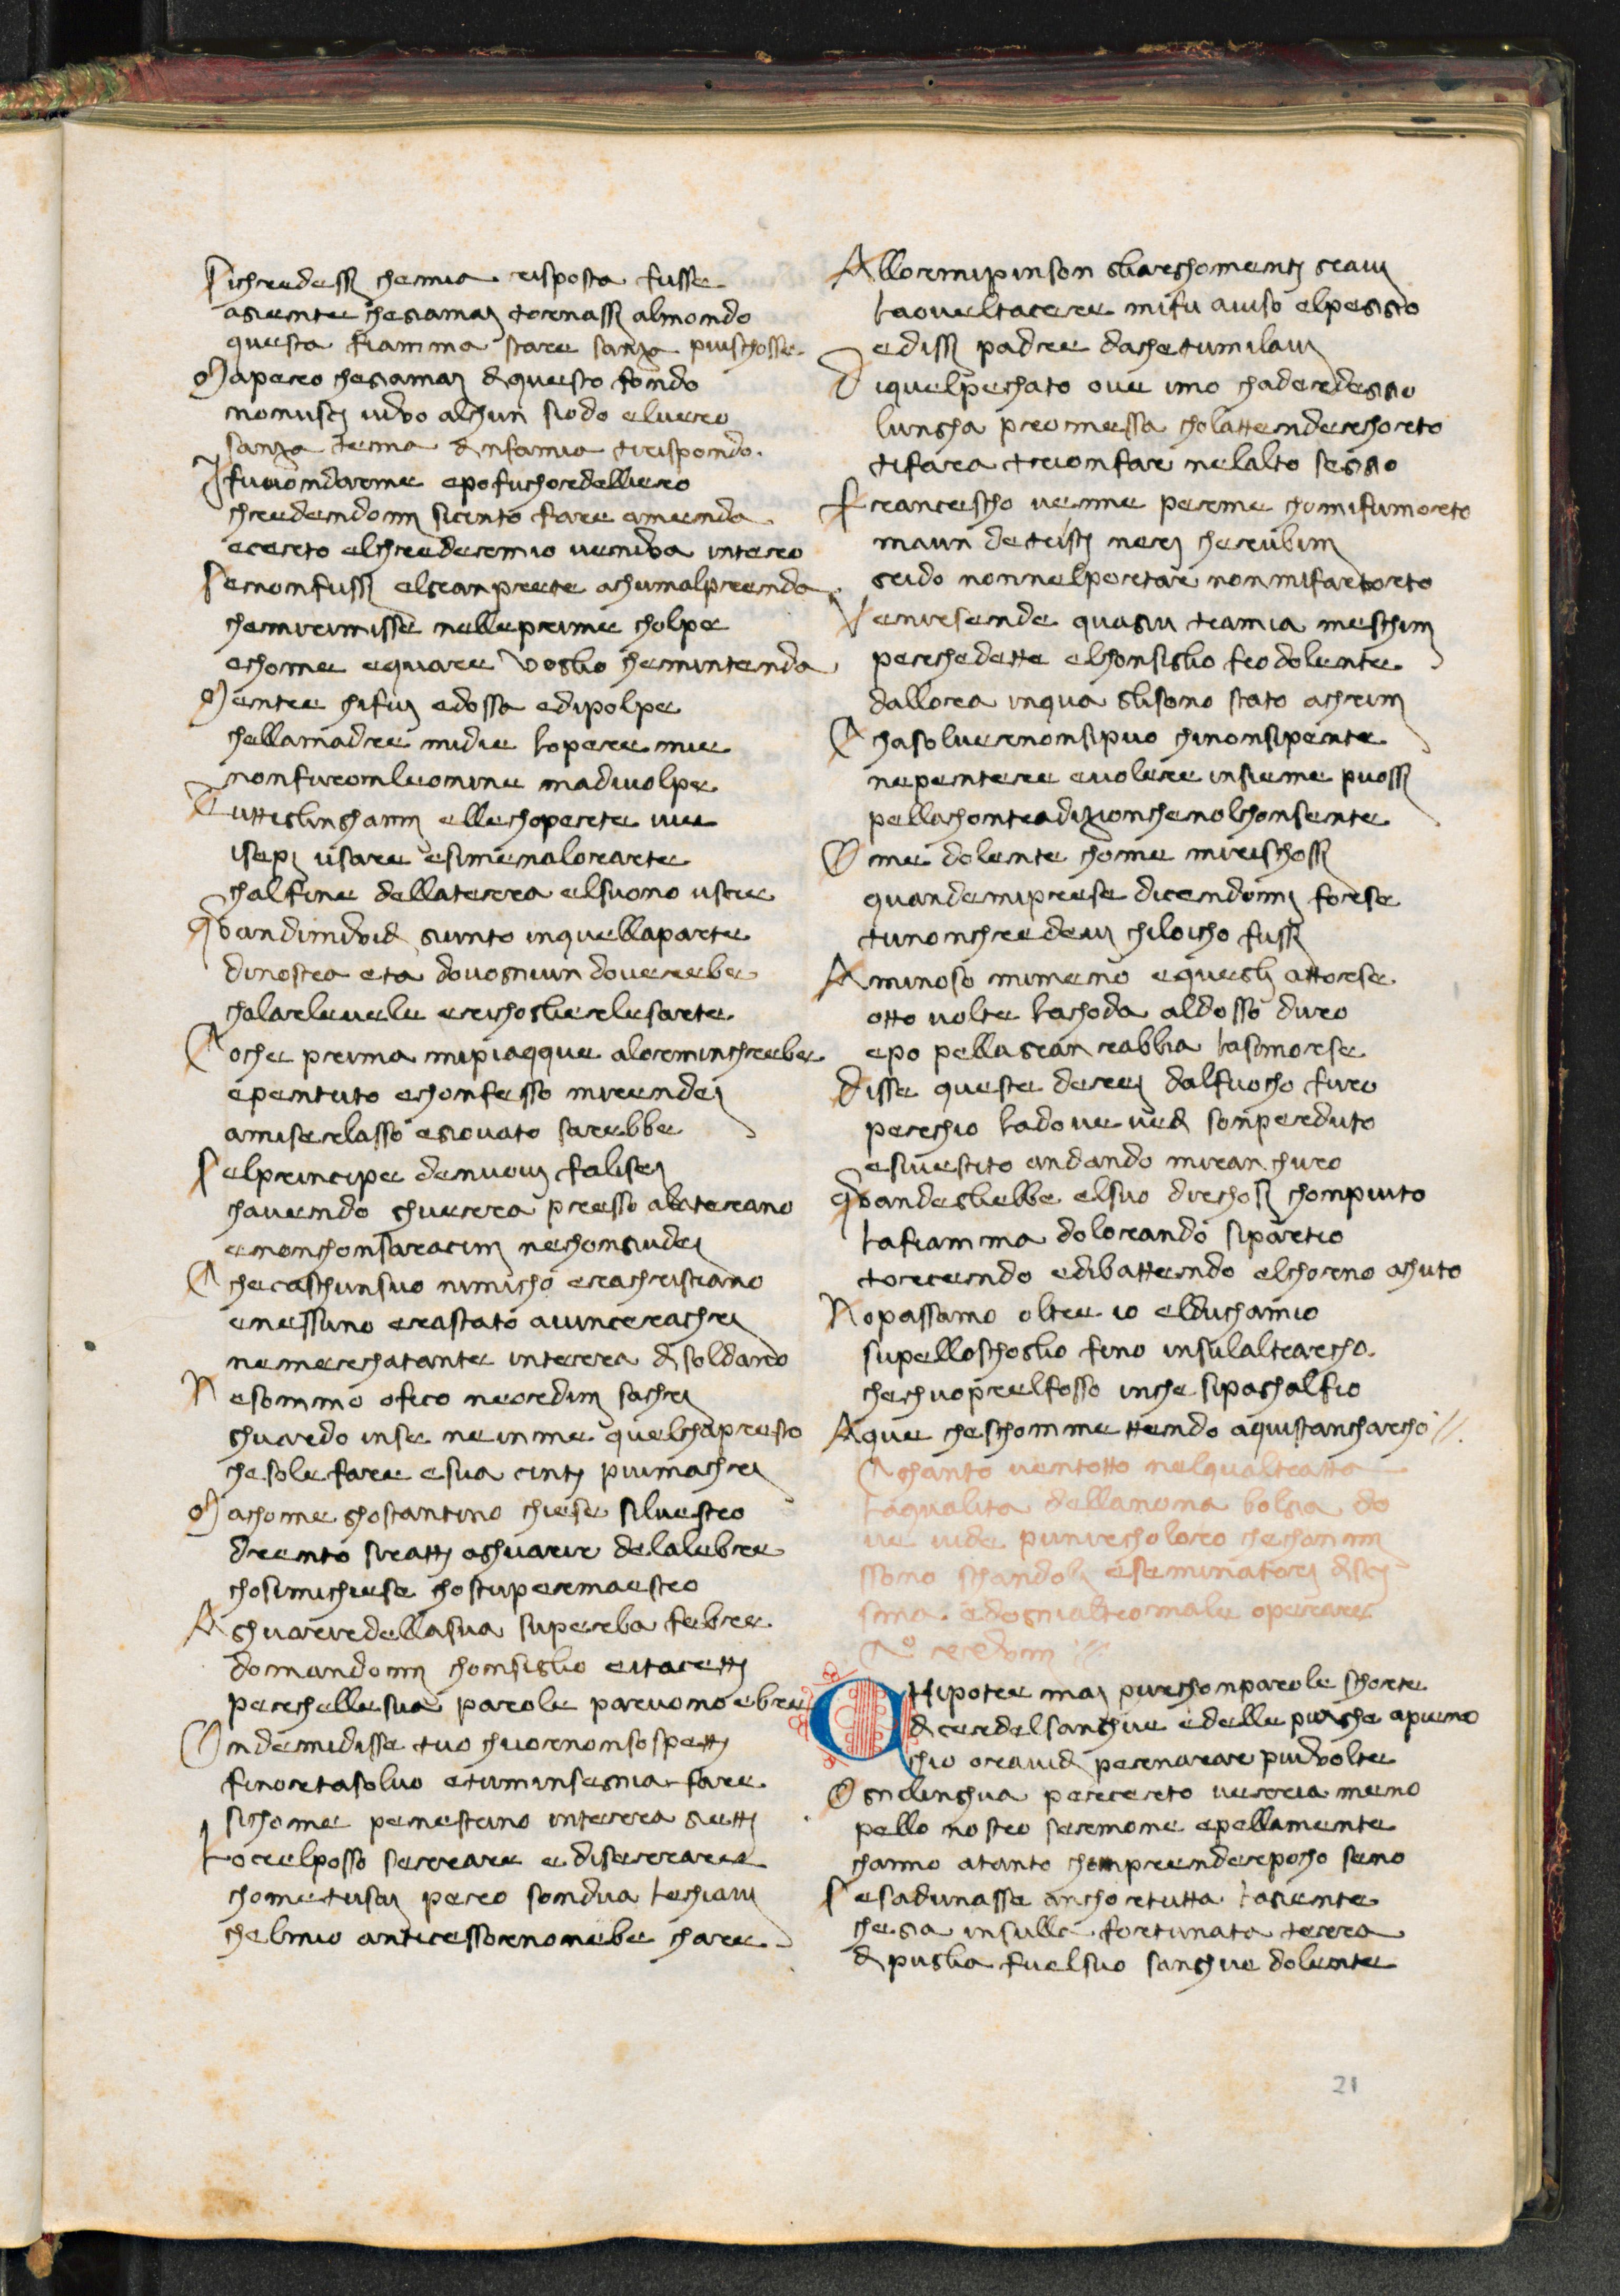 Sichredessi chemia risposta fusse
agiente chegiamai tornassi almondo
questa fiamma stare sanza piuschosse
Mapero chegiamai di questo fondo
nonusci uivo alchun siodo eluero
sanza tema dinfamia tirispondo
Ifuuomdarme epofuchordelliero
chredendomi sicinto fare amenda
ecerto elchrederemio ueniva intero
Senonfussi elgranprete achumalprenda
chemirimisse nelleprime cholpe
echome equare voglio chemintenda
Mentre chifui edossa edipolpe
chellamadre midie lopere mie
nonfuromleonine madiuolpe
Tuttiglinghanni ellechoperte uie
isepi usare esimenalorarte
chalfine dellaterra elsuono uscie
Quandimividi giunto inquellaparte
dinostra eta dovogniun doverebe
chalarleuele erichoglierlesarte
Cioche prima mipiacque alorminchrebe
epentuto echonfesso mirendei
amiserlasso egiouato sarebbe
Selprincipe denuoui falisei
chauendo ghuerra presso alaterano
enonchonsaracini nechongiudei
Checaschunsuo nimicho erachristiano
enessuno erastato auincerachri
nemerchatante interra di soldano
Nesommo ofico neordini sachri
ghuardo inse neinme quelchapresto
chesole fare esua cinti piumachri
Machome ghostantino chiese siluestro
drento siratti aghuarir delalebre
chosimichiese chostupermaestro
Aghuariredellasua superba febre
domandomi chonsiglio eitacetti
perchellesue parole paruonoebre
Ondemidisse tuo chuornonsospetti
finortasoluo etuminsegnia fare
sichome penestrino interra gietti
Locielposso serrare e diserrare
chometusai pero sondua lechiaui
chelmio anticessornonebe chare
Allormipinson gliarghomenti graui
laoveltacere mifu auiso elpeggio
edissi padre dachetumilaui
Diquelpechato oue imo chaderdeggio
lungha promessa cholattenderchorto
tifara trionfar nelalto seggio
Francescho uenne perme chomifumorto
maun detristi neri cherubini
grido nonnelportar nonmifartorto
Venirsende quagiu tramia meschini
perchedette elchonsiglio frodolente
dallora inqua glisono stato achrini
Chasoluernonsipuo chinonsipente
nepentere euolere insieme puossi
pellachontradizionchenolchonsente
Ome dolente chome mireschossi
quandemiprese dicendomi forse
tunonchredeui chiloicho fussi
Aminoso mimeno equegli attorse
otto uolte lachoda aldosso duro
epo pellagran rabbia lasimorse
Disse queste derei dalfuocho furo
perchio ladoue uedi sonperduto
esiuestito andando miran churo
Quandeglebbe elsuo dirchosi chonpiuto
lafiamma dolorando siparti
torcendo edibattendo elchorno achuto
Nopassamo oltre io elduchamio
supelloschoglio fino insulaltrarcho
chechuoprelfosso inche sipaghalfio
Aque cheschommettendo aquistancharcho
Chanto uentotto nelqualtratta
laqualita dellanona bolgia do
ue uide punircholoro chechommi
ssono schandoli eseminatori disci
sma. edognialtromale operare
Chipotre mai purchonparole schorte
dicerdelsanghue edelle piaghe apieno
chio orauidi pernarare piuvolte
Ognilinghua percerto uerria meno
pello nostro sermone epellamente
channo atanto chomprenderpocho seno
Sesadunasse anchortutta lagiente
chegia insulla fortunata terra
di puglia fuelsuo sanghue dolente
21